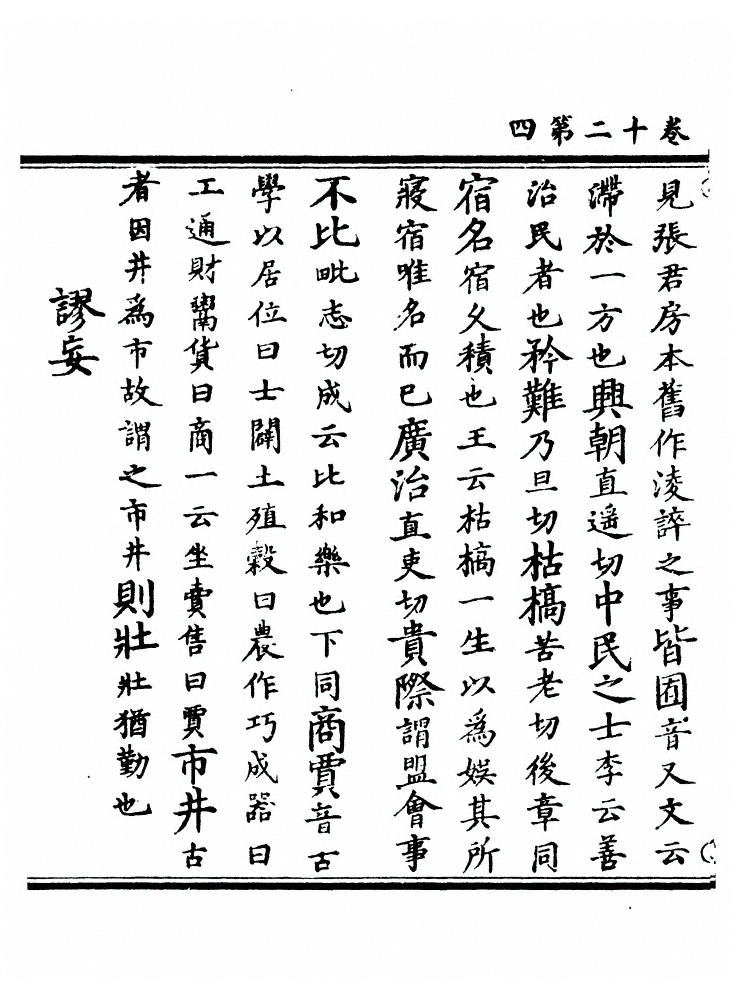 卷十二第四
見張君房本舊作淩誶之事皆囿音又文云
滯於一方也興朝直遥切中民之士李云善
治民者也矜難乃旦切枯槁苦老切後章同
宿名宿久積也王云枯槁一生以爲娱其所
寢宿唯名而已廣治直吏切貴際謂盟會事
不比毗志切成云比和樂也下同商賈音古
學以居位曰士闢土殖穀曰農作巧成器曰
工通財鬻貨曰商一云坐賣售曰賈市井古
者因井爲市故謂之市井則壯壯猶勤也
謬妄